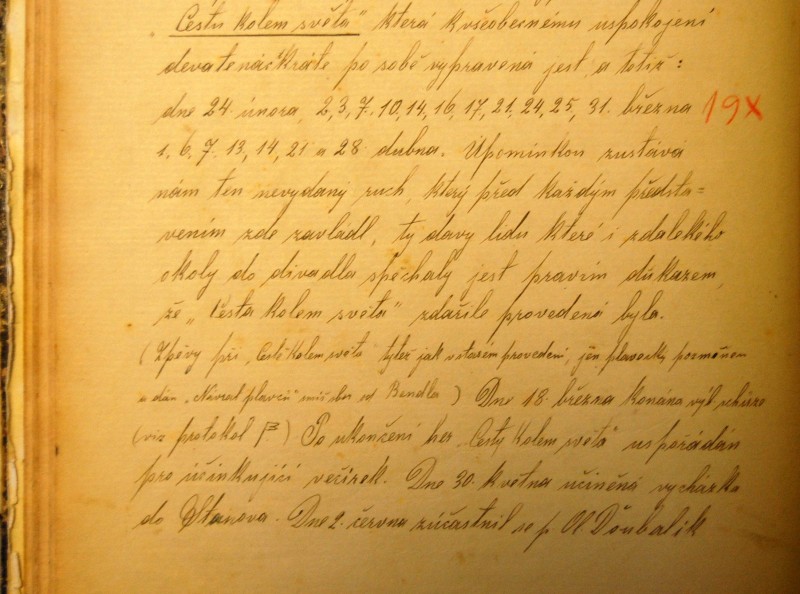 „Cestu kolem světa" která k všeobecnému uspokojení
devatenáctkráte po sobě vypravená jest, a totiž:
dne 24. února, 2, 3, 7, 10, 14, 16, 17, 21, 24, 25, 31. března 19x
1. 6. 7. 13, 14, 21 a 28 dubna. Upomínkou zustává
nám ten nevýdaný ruch, který před každým předsta=
vením zde zavládl, ty davy lidu které i zdalekého
okoly do divadla spěchaly jest pravím důkazem,
že „Cesta kolem světa" zdařile provedená byla.
(Zpěvy při „Cestě kolem světa tytéž jak v starém provedení, jen plavecký pozměněn
a dán „Návrat plavců" od Bendla) Dne 18. března konána výb. schůze
(viz protokol) Po ukončení her „Cesty kolem světa" uspořádán
pro účinkující večírek. Dne 30. května učiněná vycházka
do Stanova. Dne 2. června zúčastnil se p. Ol. Doubalík